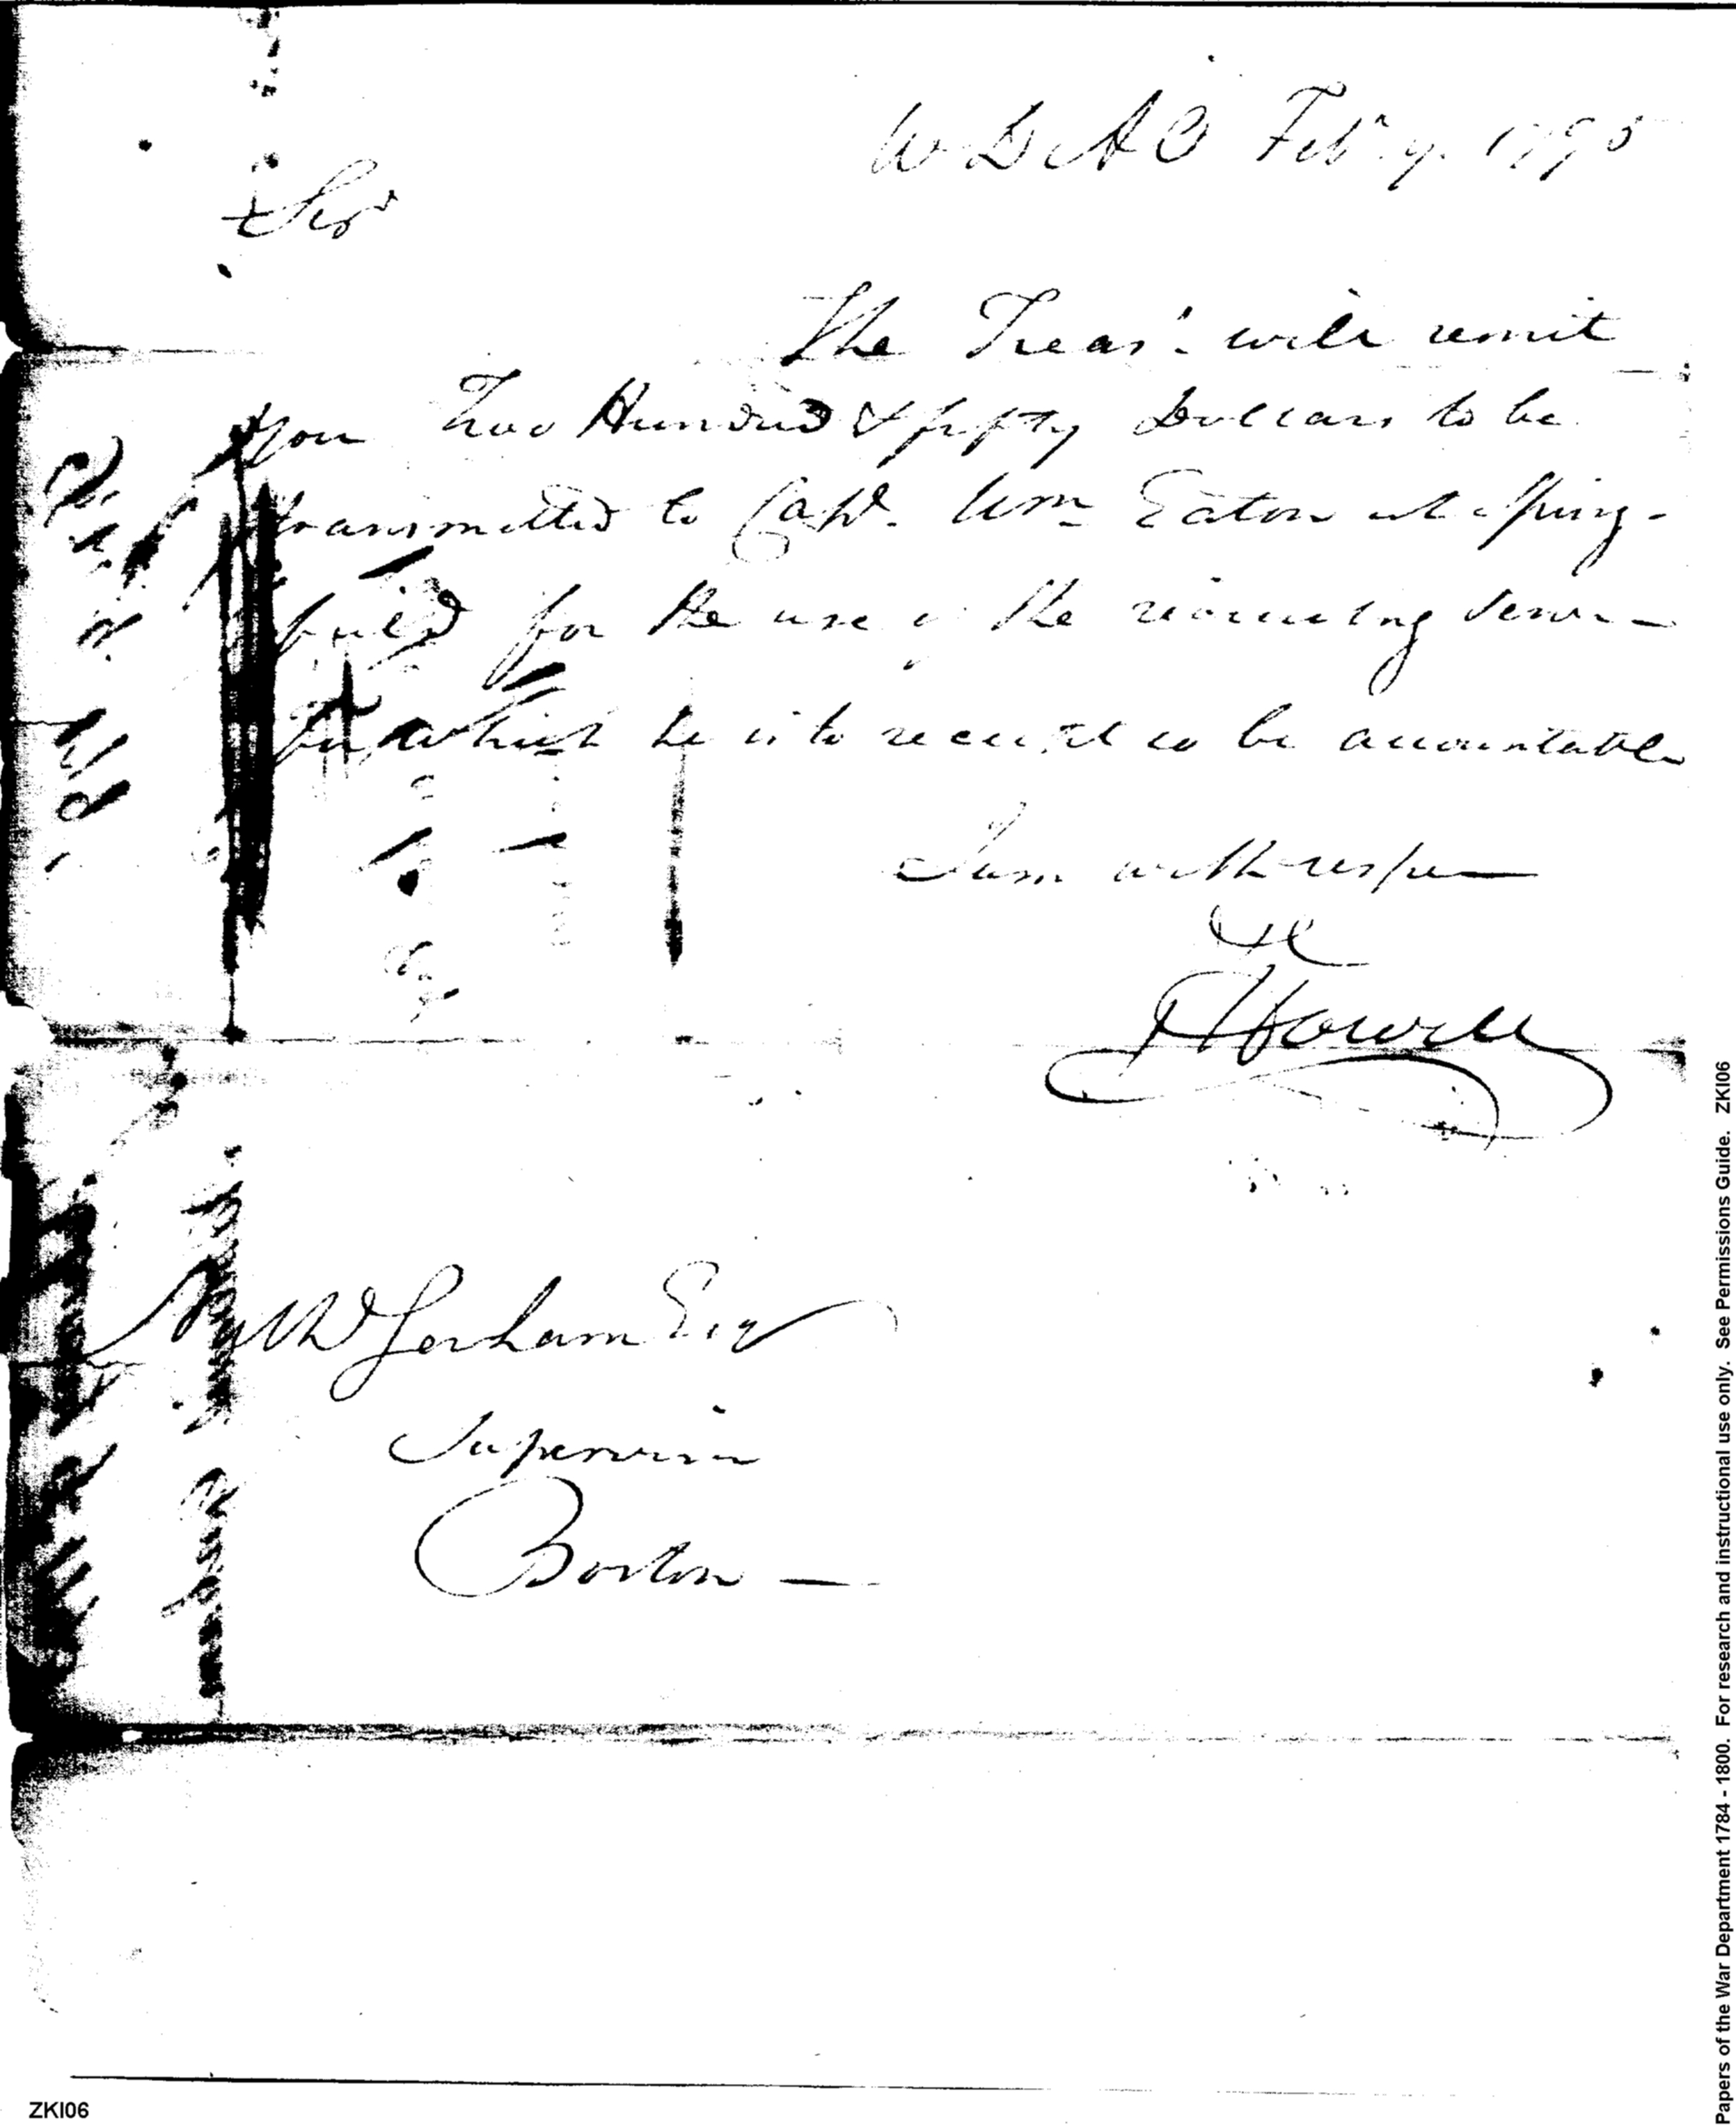 W D A O Feb.y 9. 1795
Sir
The Treasr. will remit
you Two Hundred & fifty Dollars to be
transmitted to Capt. Wm Eaton at Spring-
field for the use of the recruiting Serv-
for which he is to receipt to be accountable
I am with respe
J Howell
Nathl Gorham Esq
Supervisor
Boston —
ZKI06
Papers of the War Department 1784 - 1800. For research and instructional use only. See Permissions Guide. ZKI06